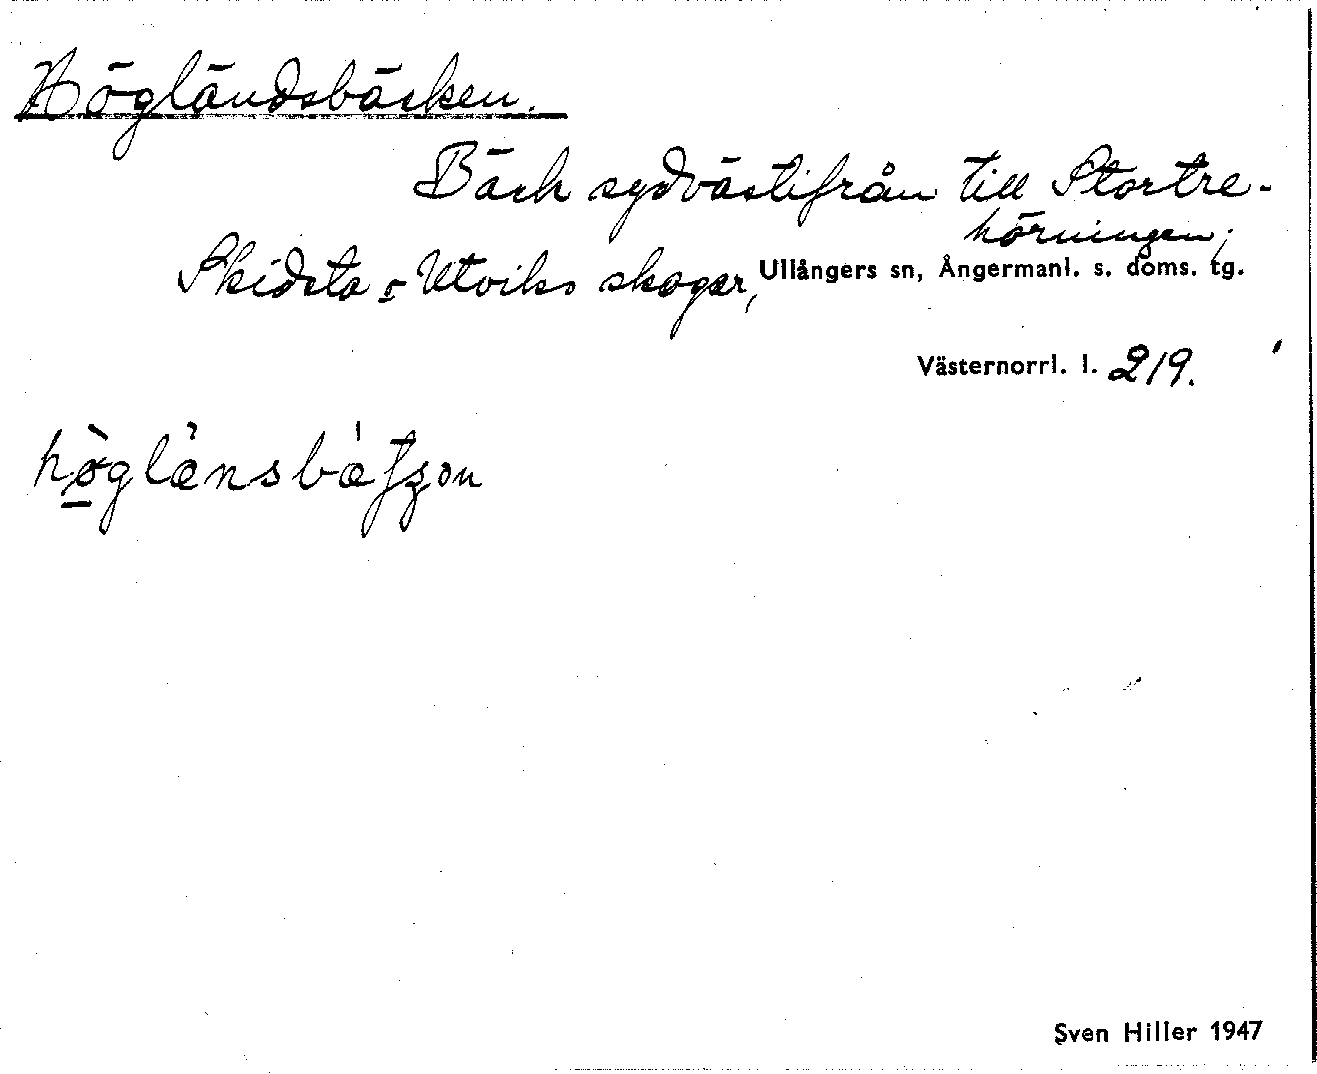 Högländsbäcken.
Bäck sydvästifrån till Stortre-
hörningen;
Skidsta o Utviks skogar, Ullångers sn, Ångermanl. s. doms. tg.
Västernorrl. l. 219.
Sven Hiller 1947